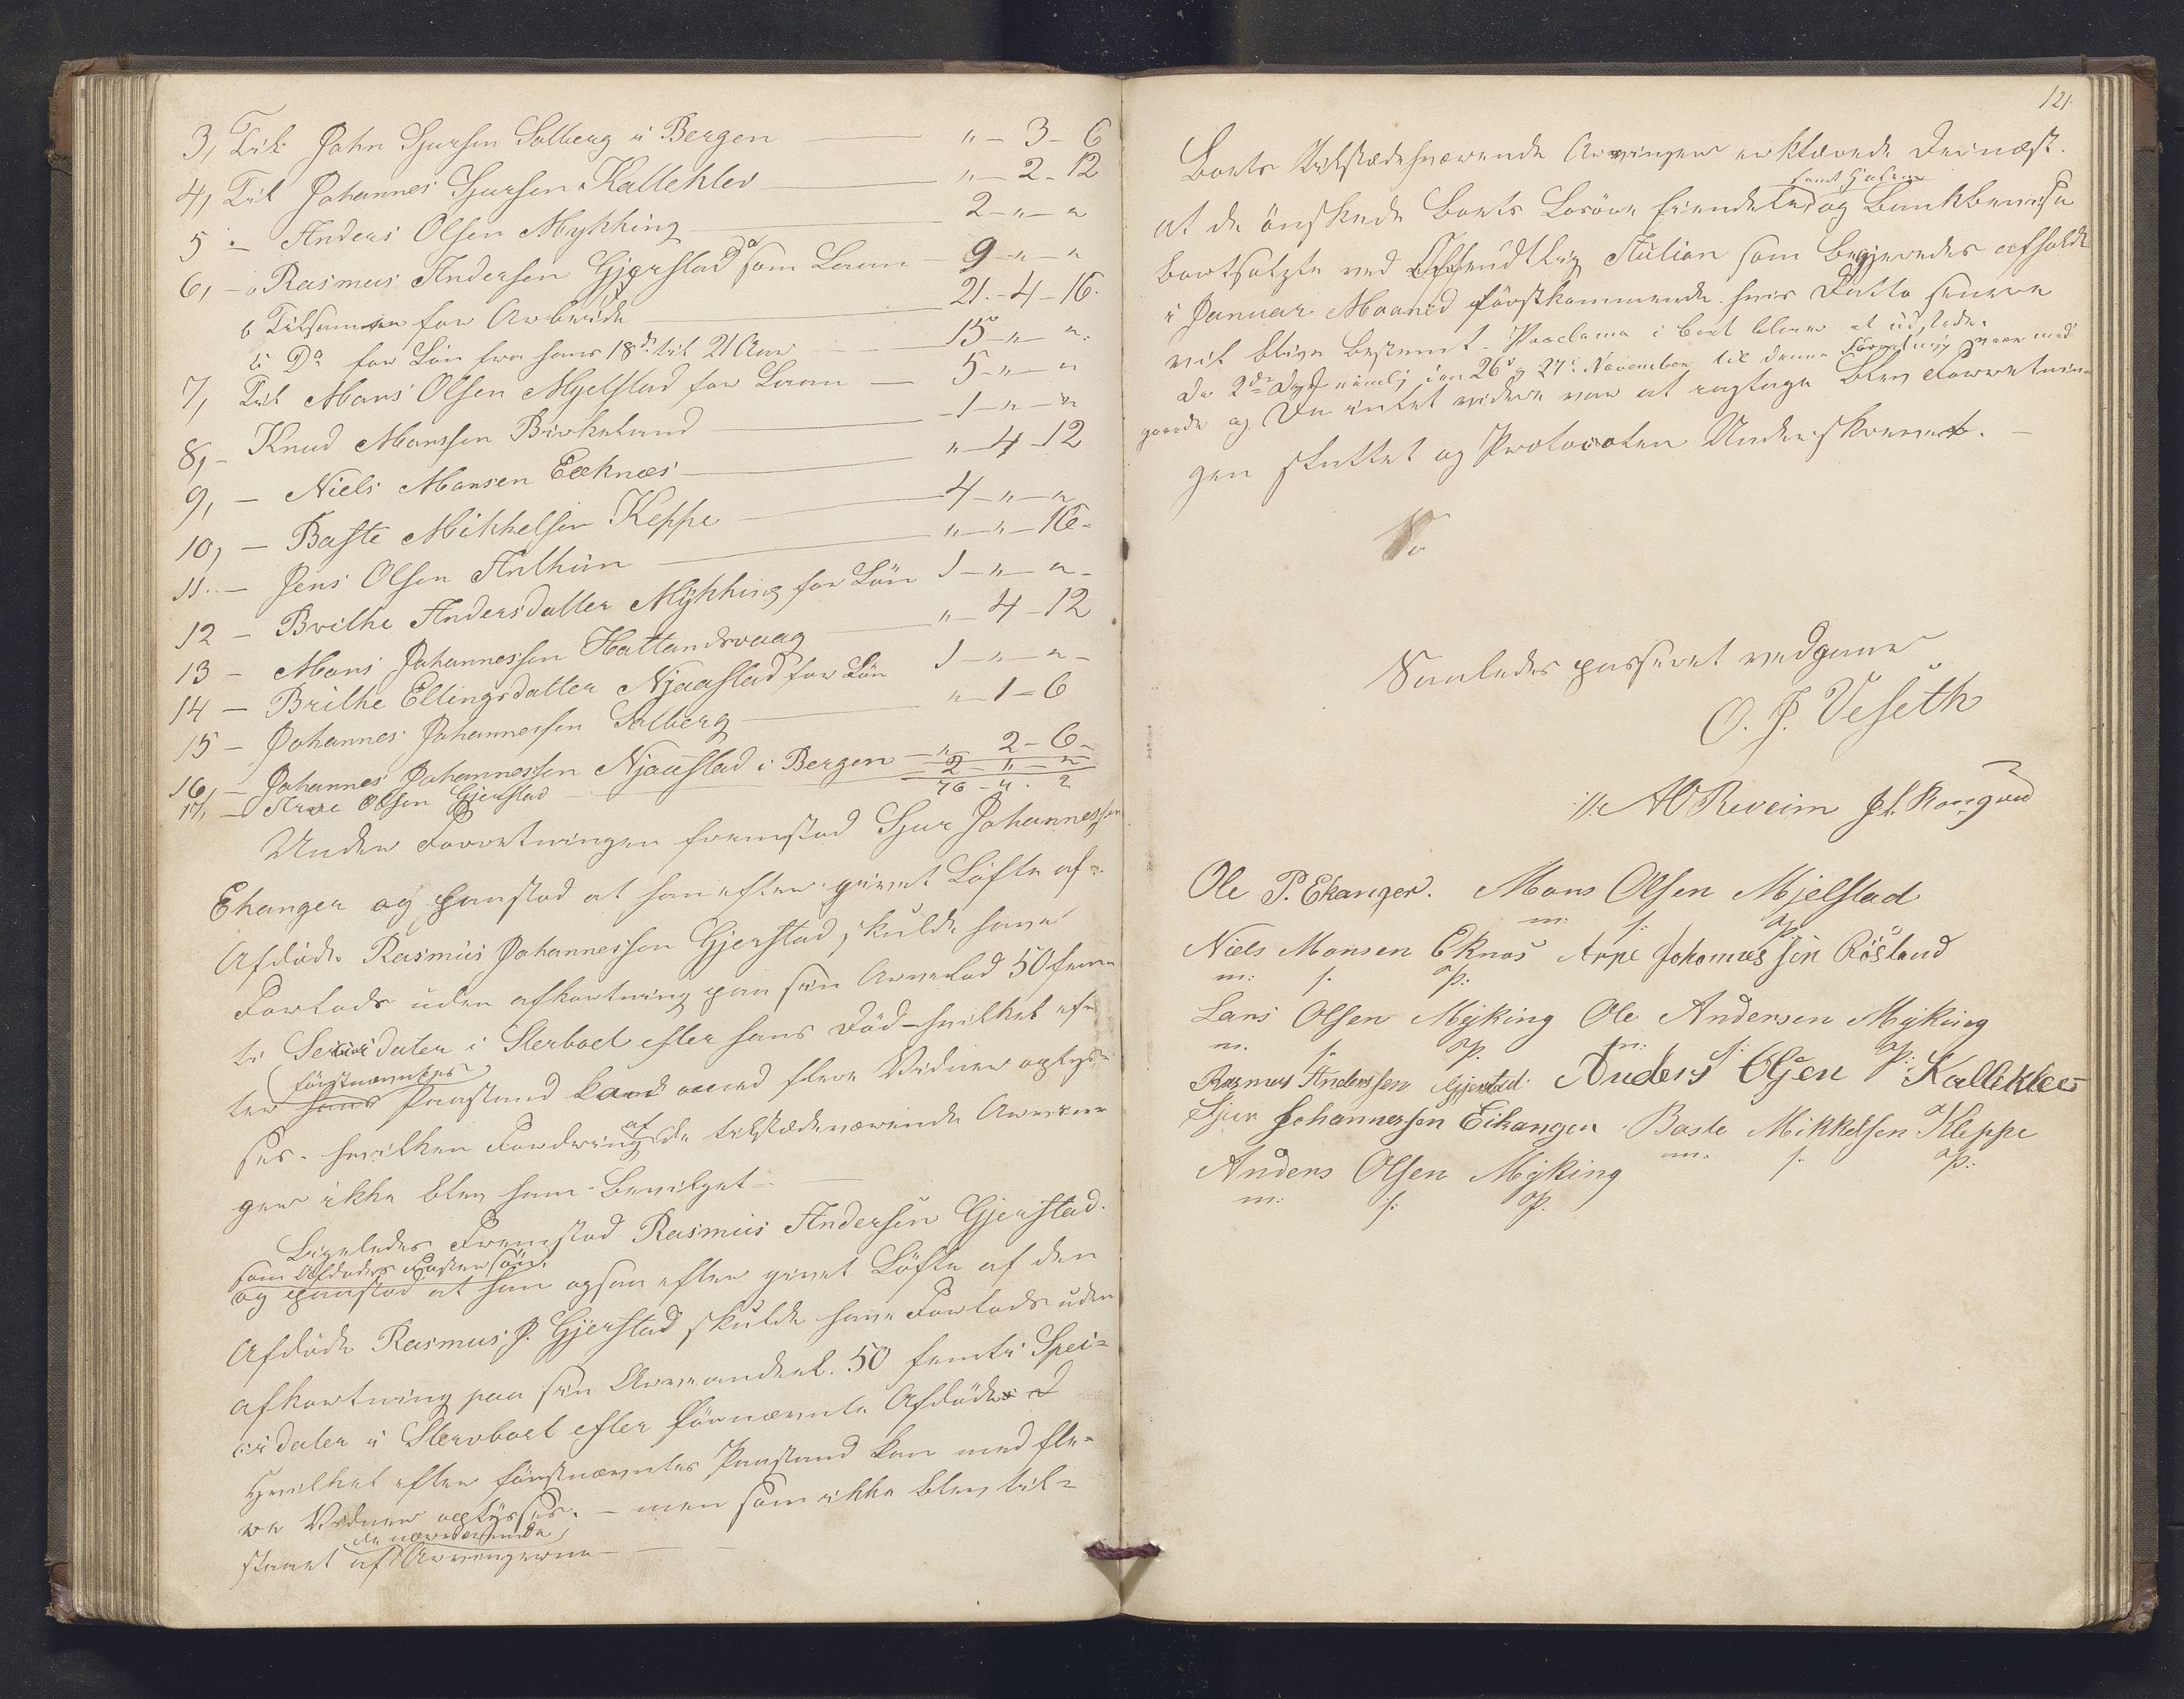 3, Til John Sjursen Solberg i Bergen — " - 3 - 6
4, Til Johannes Sjursen Kalleklev — " - 2 - 12
5 - Anders Olsen Mykking — 2 - " - "
6, - a Rasmus Andersen Gjerstad som Laan — 9 - " - "
b Tilsammen for Arbeide — 21. - 4 - 16.
c Do for Løn fra hans 18de til 21 Aar — 15 - " - ".
7, Til Mons Olsen Mjelstad for Laan — 5 - " - "
8, - Knud Monssen Birkeland — 1 - " - "
9, - Niels Monsen Eeknæs — " - 4 - 12
10, - Baste Mikkelsen Kleppe — 4 - " - "
11. - Jens Olsen — " - " - 16 -
12 - Brithe Andersdatter Mykking for Løn 1 - " - " -
13 - Mons Johannessen Hatlandsvaag — " - 4 - 12
14 - Brithe Ellingsdatter Njaastad for Løn 1 - " - " -
15 - Johannes Johannessen Solberg — " - 1 - 6
16, - Johannes Johannessen Njaastad i Bergen — " 2 - 6 -
17, - Olsen Gjerstad — 2 - " - "
76 - 4 - 2
Under Forretningen fremstod Sjur Johannessen
Ekanger og paastod at han efter givet Løfte af
Afdøde Rasmus Johannessen Gjerstad, skulde have
Forlods uden afkortning paa sin Arvelod 50 femm
ti Speciedaler i Sterboet efter hans Død - hvilket ef
førstnævntes
ter hans Paastand kand med flere Vidner oplys-
af
ses. hvilken Fordring de tilstædeværende Arvin
ger ikke blev ham bevilget -
Ligeledes Fremstod Rasmus Andersen Gjerstad.
som Afdødes Fostersøn,
og paastod at han ogsaa efter givet Løfte af den
Afdøde Rasmus J. Gjerstad skulde have Forlods uden
afkortning paa sin Arveandeel. 50 femti Speci=
daler i Stervboet efter fornævnte Afdøde
Hvilket efter førstnævntes Paastand kan med fle=
re Vidner oplyses. - men som ikke blev til=
de nærværende
staaet af Arvingerne —
121.
Boets tilstædeværende Arvinger erklærede dernæst.
samt
at de ønskede Boets Løsøre Eiendele og Bankbeviise
bortsolgte ved Offendtlig Auktion som begjæredes afholdt
i Januar Maaned førstkommende hvis Datto senere
vil blive bestemt - Proclama i Boet bliver at udstede.
Da 2de Dage nemlig den 26de og 27de November til denne Forretning var med
gaaede og Da intet videre var at iagttage blev Forretnin
gen sluttet og Protocolen Underskrevet. -
Saaledes passeret vedgaaes
O. J. Veseth
AO Reveim
Ole P. Ekanger. Mons Olsen Mjelstad
m: f: P:
Niels Monsen Eknæs Arne Johannessen Røsland
m: f. P.:
Lars Olsen Myking Ole Andersen Myking
m. f. P. m: f: P.:
Rasmus Anderssen Gjerstad. Anders Olsen Kallekleev
Sjur Johannessen Eikanger Baste Mikkelsen Kleppe
m. f. P.:
Anders Olsen Myking
m: f: P.